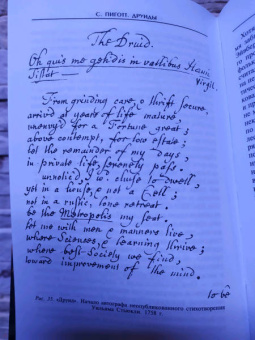 С. ПИГОТТ. ДРУИДЫ
The Druid.
Oh quis me gelidis in vallibus Haemi
Sistat — Virgil.
From grinding care, & thrift secure,
arriv'd at years of life mature,
unenvy'd for a Fortune great;
above contempt, for low estate;
let the remainder of my days,
in private life, serenely pass.
unnotic'd, I'd chuse to dwell,
yet in a house, & not a Cell;
not in a rustic, lone retreat,
be the Metropolis my seat.
let me with men & manners live,
where Sciences, & learning thrive;
where best Society we find,
toward improvement of the mind.
to be
Рис. 31. «Друид». Начало автографа неопубликованного стихотворения
Уильяма Стьюкли. 1758 г.